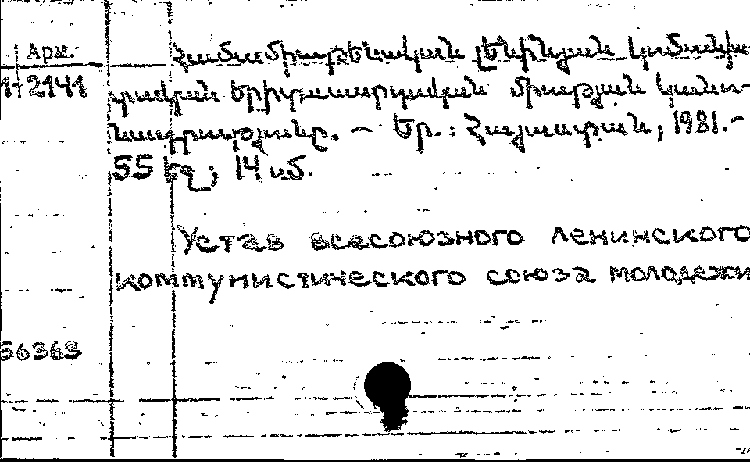 Арм.
Համամիութենական լենինյան կոմունիս-
1-2141
տական երիտասարդական միության կանո-
նադրությունը. – Եր.: Հայաստան, 1981.–
55 էջ; 14 սմ.
Устав всесоюзного Ленинского
коммунистического союза молодежи
56363